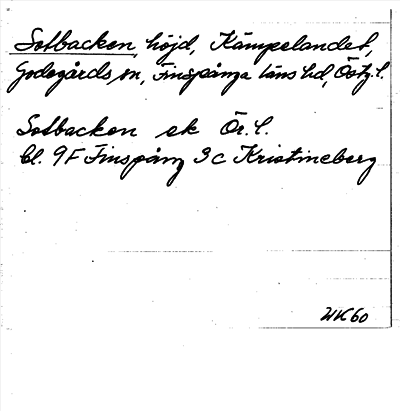 Solbacken, höjd, Kämpelandet,
Godegårds sn, Finspånga läns hd, Östg. l.
Solbacken ek Ör. l.
bl. 9F Finspång 3c Kristineberg
WK60